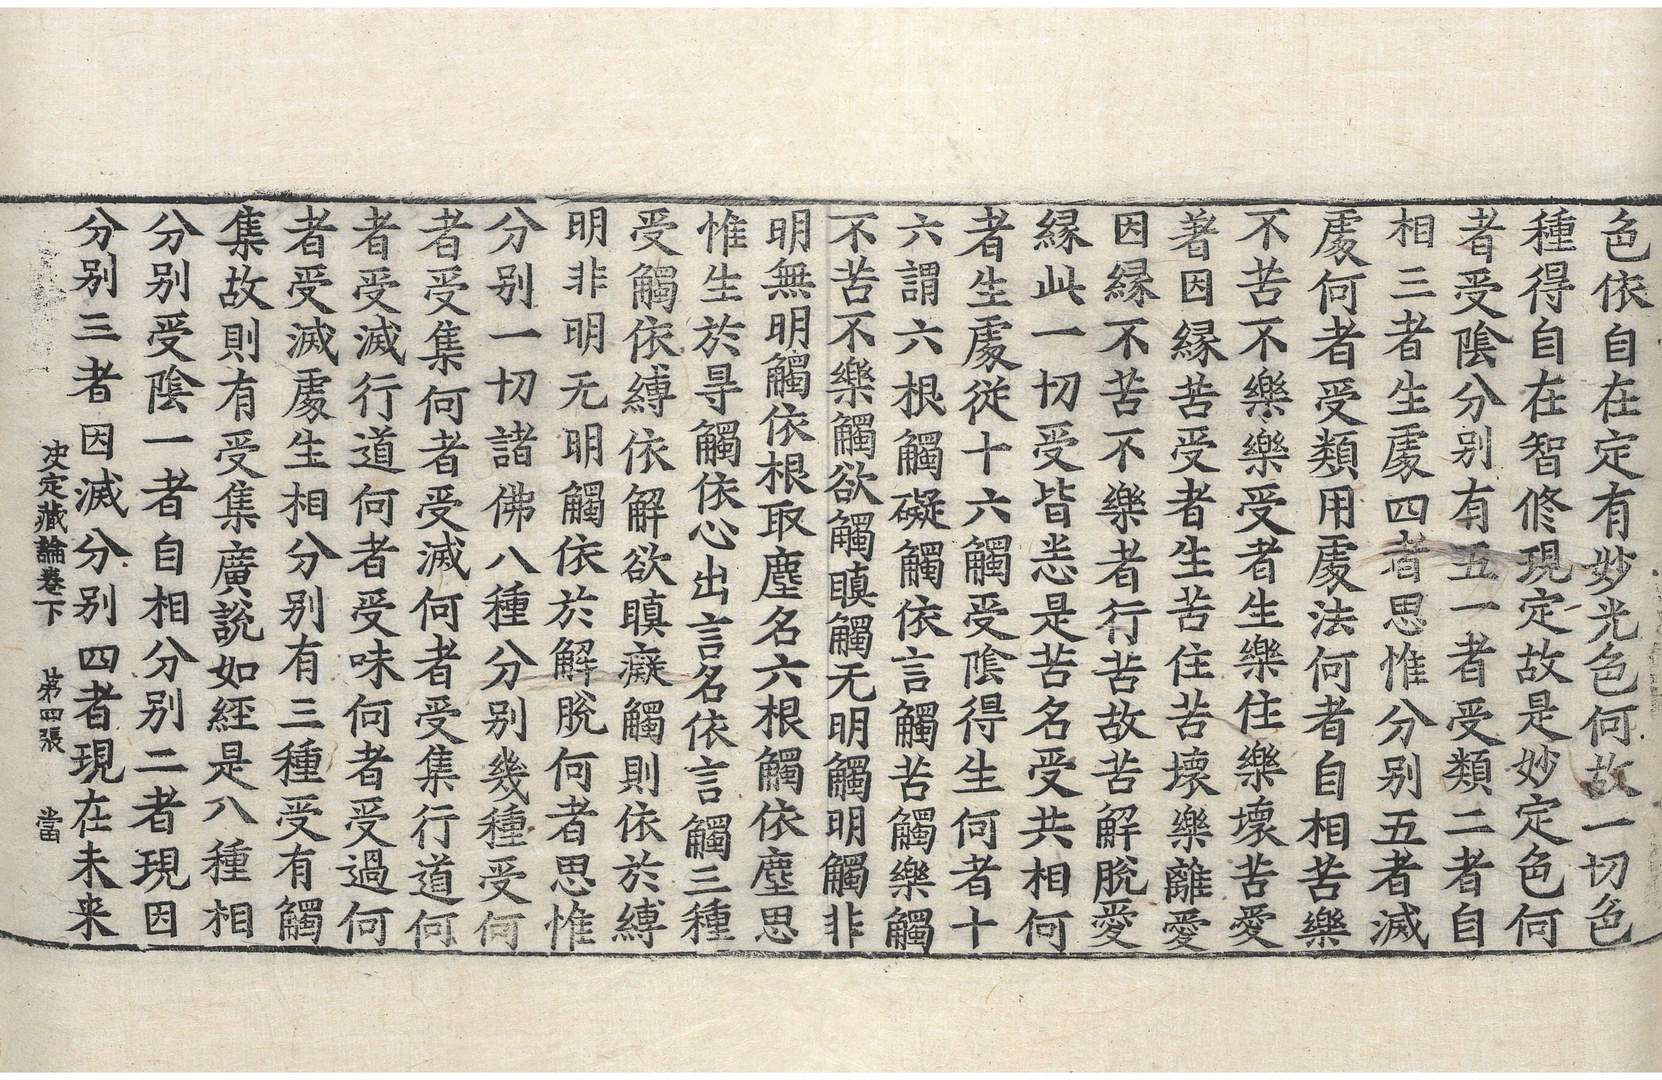 色依自在定有妙光色何故一切色
種得自在智修現定故是妙定色何
者受陰分別有五一者受類二者自
相三者生處四者思惟分別五者滅
處何者受類用處法何者自相苦樂
不苦不樂樂受者生樂住樂壞苦愛
著因緣苦受者生苦住苦壞樂離愛
因緣不苦不樂者行苦故苦解脫愛
緣此一切受皆悉是苦名受共相何
者生處從十六觸受陰得生何者十
六謂六根觸礙觸依言觸苦觸樂觸
不苦不樂觸欲觸瞋觸无明觸明觸非
明無明觸依根取塵名六根觸依塵思
惟生於㝵觸依心出言名依言觸三種
受觸依縛依解欲瞋癡觸則依於縛
明非明无明觸依於解脫何者思惟
分別一切諸佛八種分別幾種受何
者受集何者受滅何者受集行道何
者受滅行道何者受味何者受過何
者受滅處生相分別有三種受有觸
集故則有受集廣說如經是八種相
分別受陰一者自相分別二者現因
分別三者因滅分別四者現在未来
決定藏論卷下 第四張 當